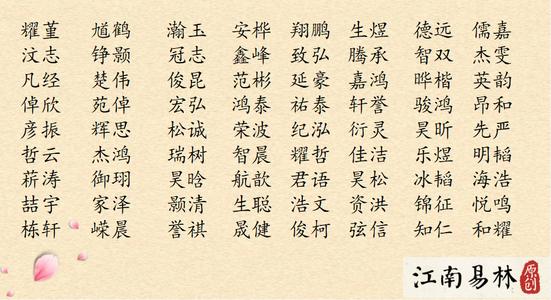 耀堇 墐鹤 瀚玉 安桦 翔鹏 生煜 德远 儒嘉
汶志 铮颢 冠志 鑫峰 致弘 腾承 智双 杰雯
凡经 楚伟 俊昆 范彬 延豪 嘉鸿 晔楷 英韵
倬欣 苑倬 宏弘 鸿泰 祐泰 轩誉 骏鸿 昂和
彦振 辉思 松诚 荣波 纪泓 衍灵 昊昕 先严
哲云 杰鸿 瑞树 智晨 耀哲 佳洁 乐煜 明韬
薪涛 御珝 昊晗 航歆 君语 昊松 冰韬 海浩
喆宇 家泽 颢清 生聪 浩文 资洪 锦征 悦鸣
栋轩 嵘晨 誉祺 晟健 俊柯 弦信 知仁 和耀
江南易林 原创